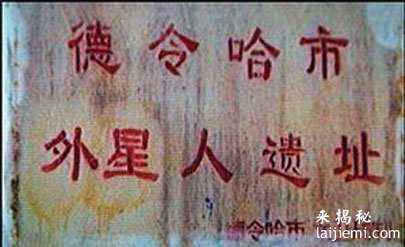 德令哈市
外星人遗址
令哈市
来揭秘
laijiemi.com